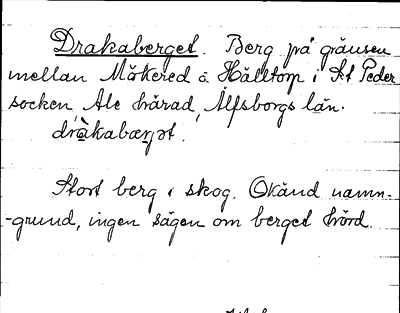 Drakaberget. Berg på gränsen
mellan Mökered o. Hälltorp i St Peder
socken, Ale härad, Älfsborgs län.
dràkabærjət.
Stort berg i skog. Okänd namn-
-grund, ingen sägen om berget hörd.